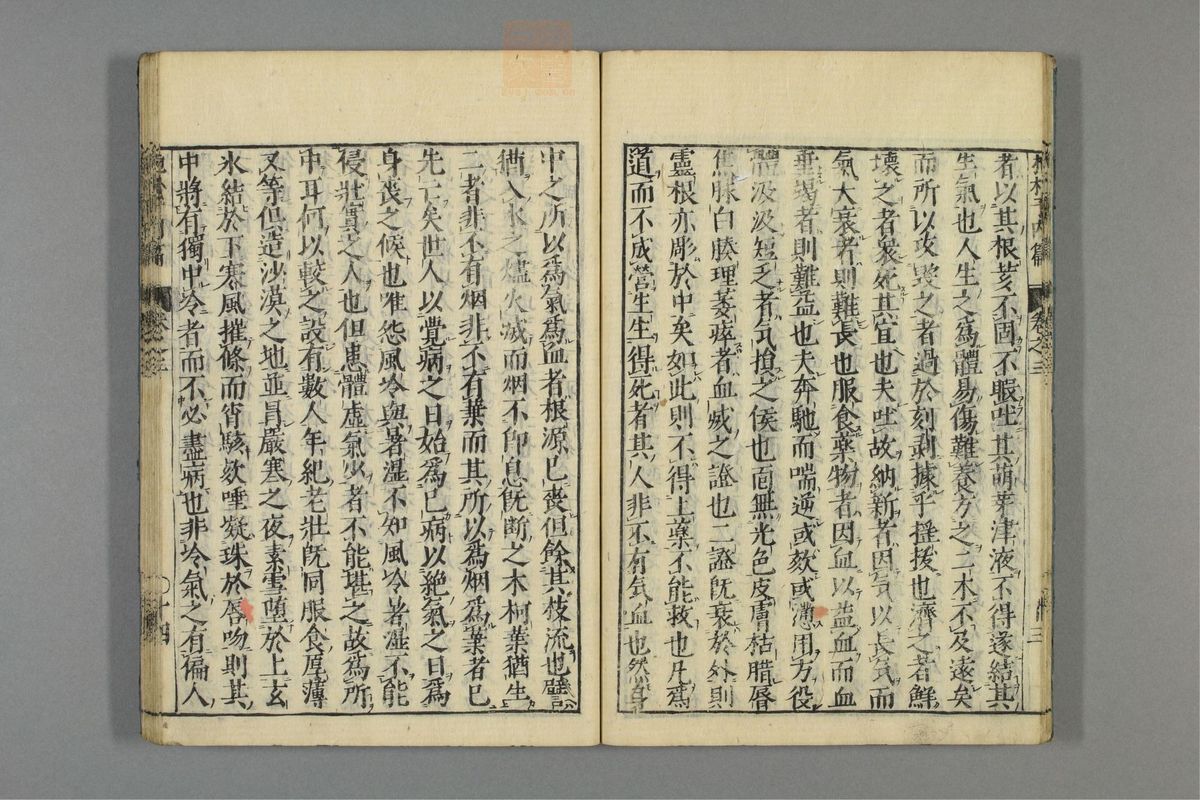 者以其根荄不固不暇吐其萌芽津液不得遂結其
生氣也人生之為體易傷難養方之二木不及遠矣
而所以攻毀之者過於刻剥據乎搖拔也濟之者鮮
壞之者衆死其宜也夫吐故納新者因氣以長氣而
氣大衰者則難長也服食藥物者因血以益血而血
垂竭者則難益也夫奔馳而喘逆或欬或懣用力役
體汲汲短乏者氣損之候也面無光色皮膚枯腊唇
焦脉白腠理萎瘁者血減之證也二證既衰於外則
靈根亦彫於中矣如此則不得上藥不能救也凡為
道而不成營生生得死者其人非不有氣血也然身
中之所以爲氣爲血者根源已喪但餘其枝流也譬
猶入水之燼火滅而烟不即息既断之木柯葉猶生
二者非不有烟非不有葉而其所以爲烟爲葉者已
先亡矣世人以覺病之日始爲已病以絶氣之日爲
身喪之候也唯怨風冷與暑濕不知風冷暑濕不能
侵壯實之人也但患體虛氣少者不能堪之故爲所
中耳何以較之設有數人年紀老壯既同服食厚薄
又等但造沙漠之地並冐嚴寒之夜素雪墮於上玄
氷結於下寒風摧條而宵駭欬唾凝珠於唇吻則其
中將有獨中冷者而不必盡病也非冷氣之有偏人
卷之三
十四